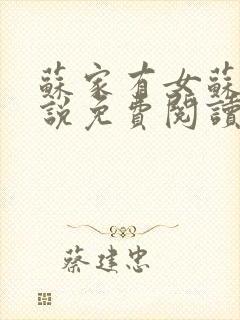 蘇家有女蘇
說免費閱讀
蔡建忠